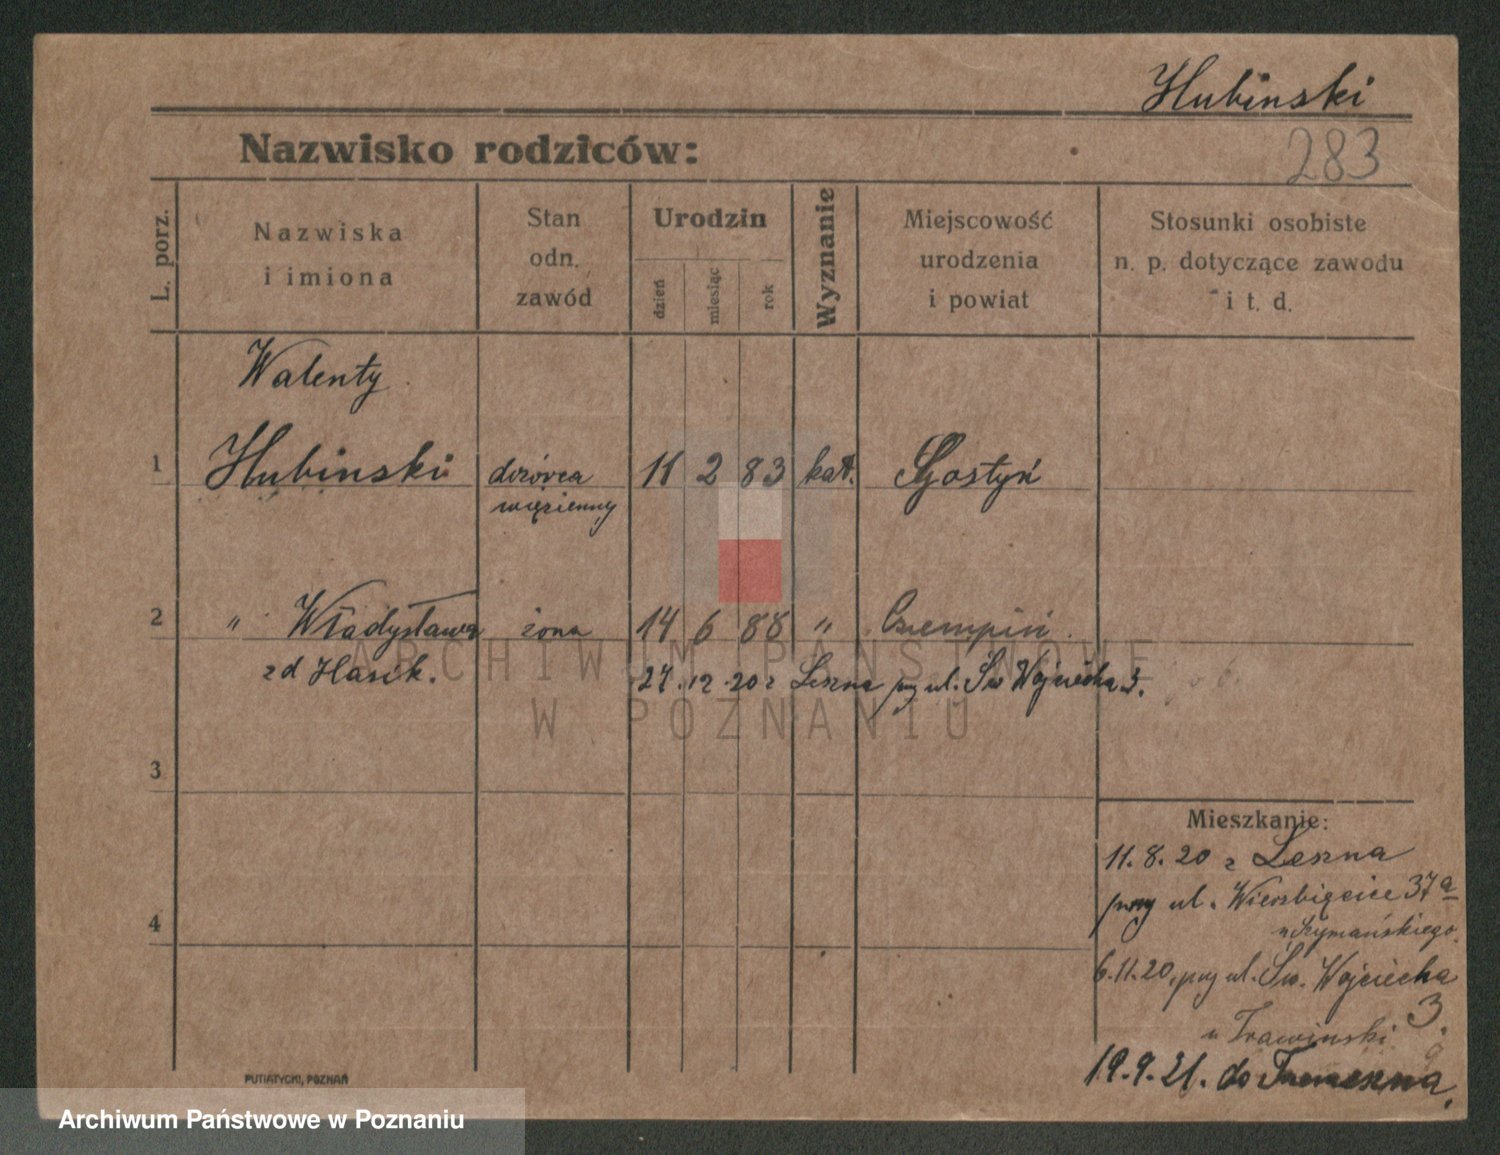 Hubinski
Nazwisko rodziców:
283
L. porz.
Nazwiska
i imiona
Stan
odn.
zawód
Urodzin
dzień
miesiąc
rok
Wyznanie
Miejscowość
urodzenia
i powiat
Stosunki osobiste
n. p. dotyczące zawodu
i t. d.
Walenty
1 Hubinski dozórca 11 2 83 kat. Gostyń
więzienny
2 " Władysława żona 14 6 88 " Czempiń.
zd Hasik. 27.12.20 z Leszna przy ul. Św Wojciecha 3.
ARCHIWUM PAŃSTWOWE
W POZNANIU
3
4
Mieszkanie:
11.8.20 z Leszna
przy ul. Wierzbięcice 37a
u Szymańskiego.
6.11.20, przy ul. Św. Wojciecha
3.
u Trawinski
19.9.21. do Tremeszna.
PUTIATYCKI, POZNAŃ
Archiwum Państwowe w Poznaniu